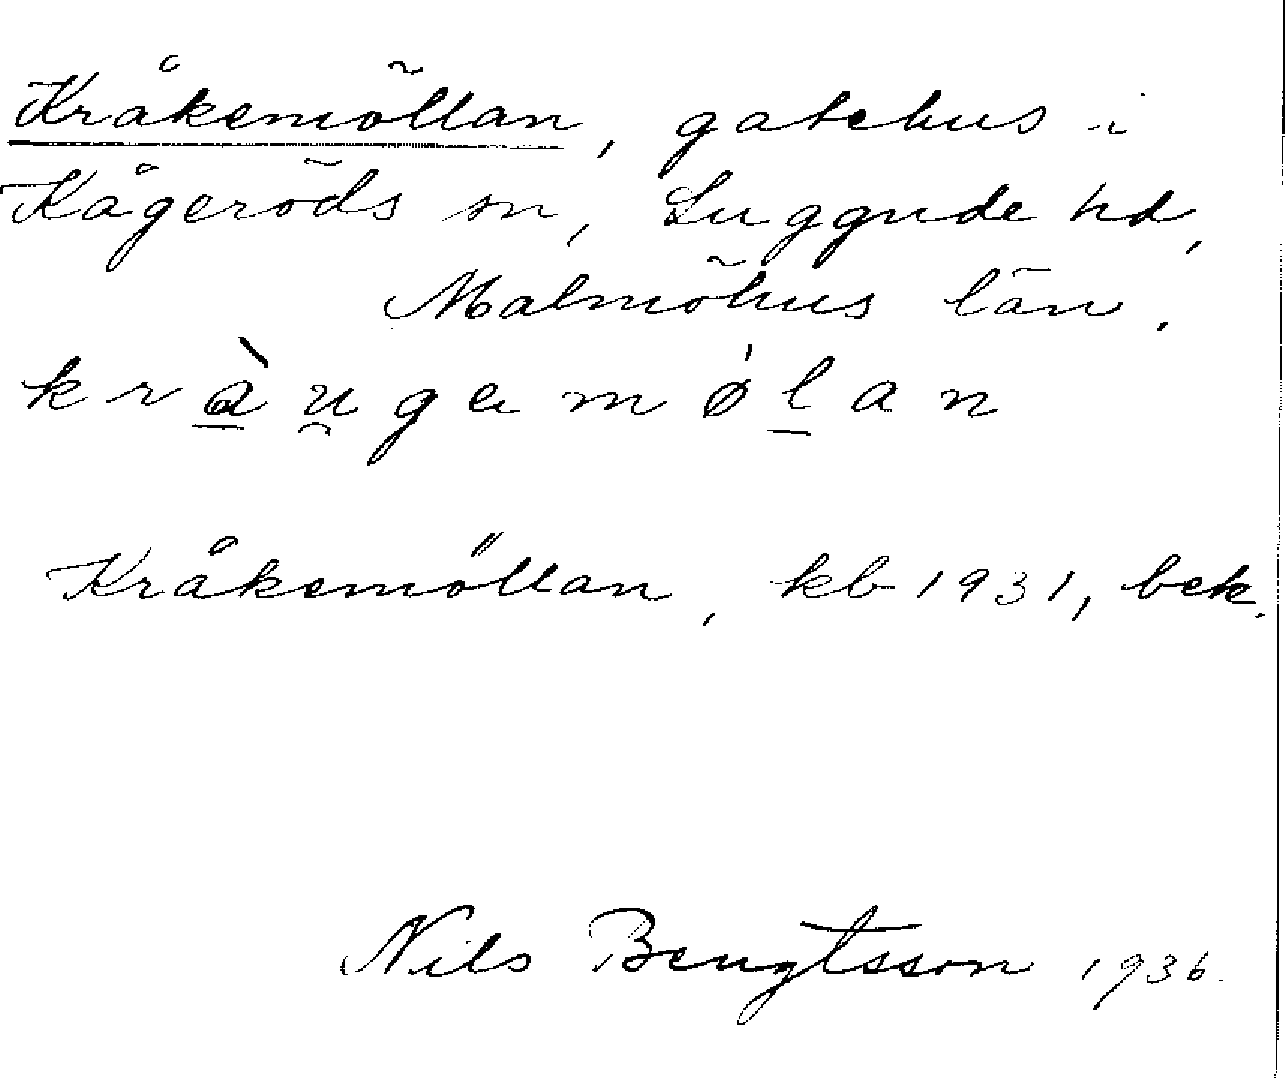 Kråkemöllan, gatehus i
Kågeröds sn, Luggude hd,
Malmöhus län.
kràu̯gamǿlan
Kråkemöllan, kb 1931, bek.
Nils Bengtsson 1936.